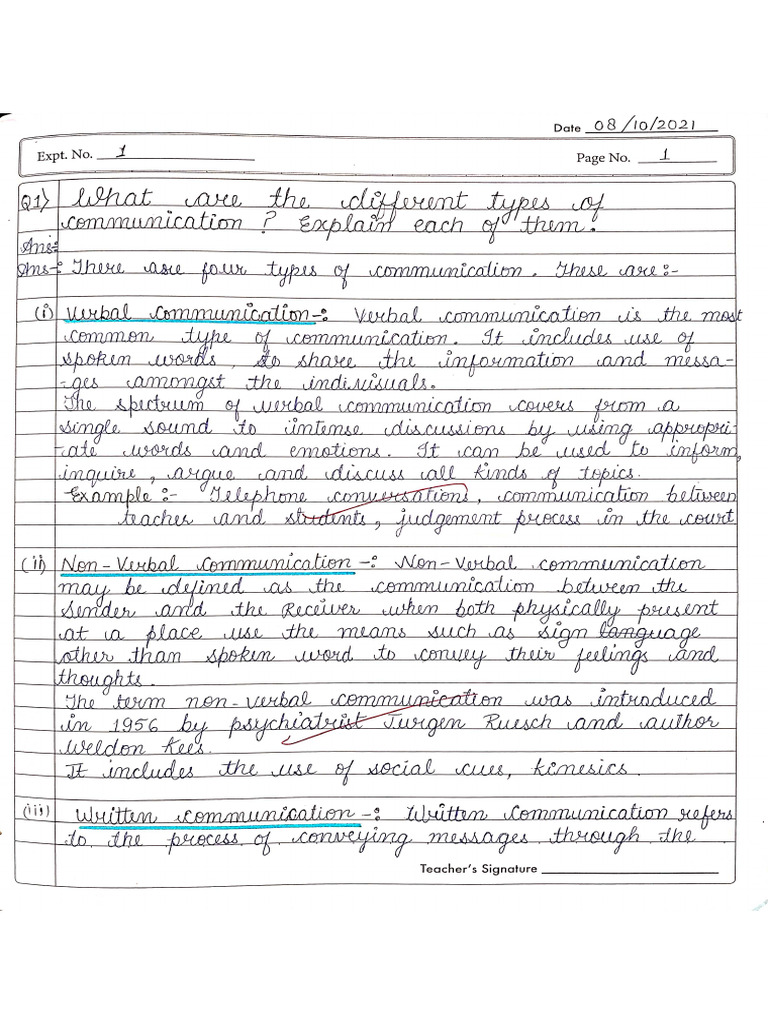 Date 08/10/2021
Expt. No. 1
Page No. 1
Q1) What are the different types of
communication? Explain each of them.
Ans:-
Ans-: There are four types of communication. These are:-
(i) Verbal Communication-: Verbal communication is the most
common type of communication. It includes use of
spoken words, to share the information and messa-
-ges amongst the indivisuals.
The spectrum of verbal communication covers from a
single sound to intense discussions by using appropri-
-ate words and emotions. It can be used to inform,
inquire, argue and discuss all kinds of topics.
Example:- Telephone conversations, communication between
teacher and students, judgement process in the court
(ii) Non-Verbal Communication-: Non-Verbal communication
may be defined as the communication between the
Sender and the Receiver when both physically present
at a place use the means such as sign language
other than spoken word to convey their feelings and
thoughts.
The term non-verbal communication was introduced
in 1956 by psychiatrist Jurgen Ruesch and author
Weldon Kees.
It includes the use of social cues, kinesics.
(iii) Written Communication-: Written Communication refers
to the process of conveying messages through the
Teacher's Signature